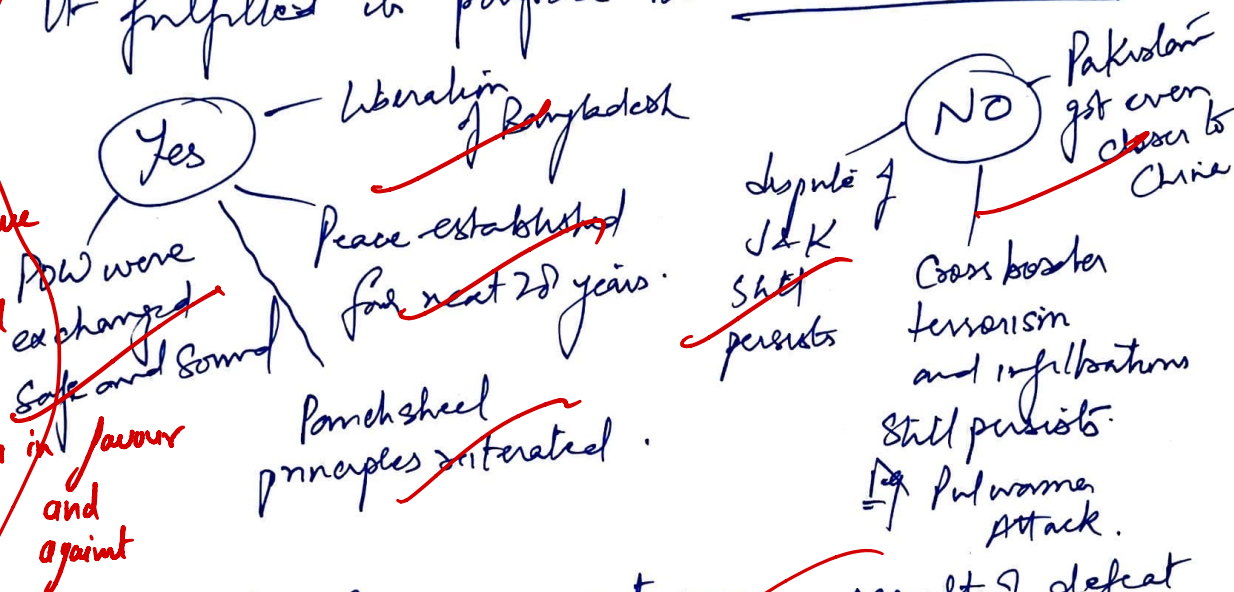 It fulfilled its purpose
Yes
Liberation
of Bangladesh
Peace established
for next 28 years.
POW were
exchanged
safe and sound
Panchsheel
principles reiterated.
NO
Pakistan
got even
closer to
China
dispute of
J&K
still
persists
Cross border
terrorism
and infiltrations
still persists.
Eg Pulwama
Attack.
in favour
and
against
result of defeat